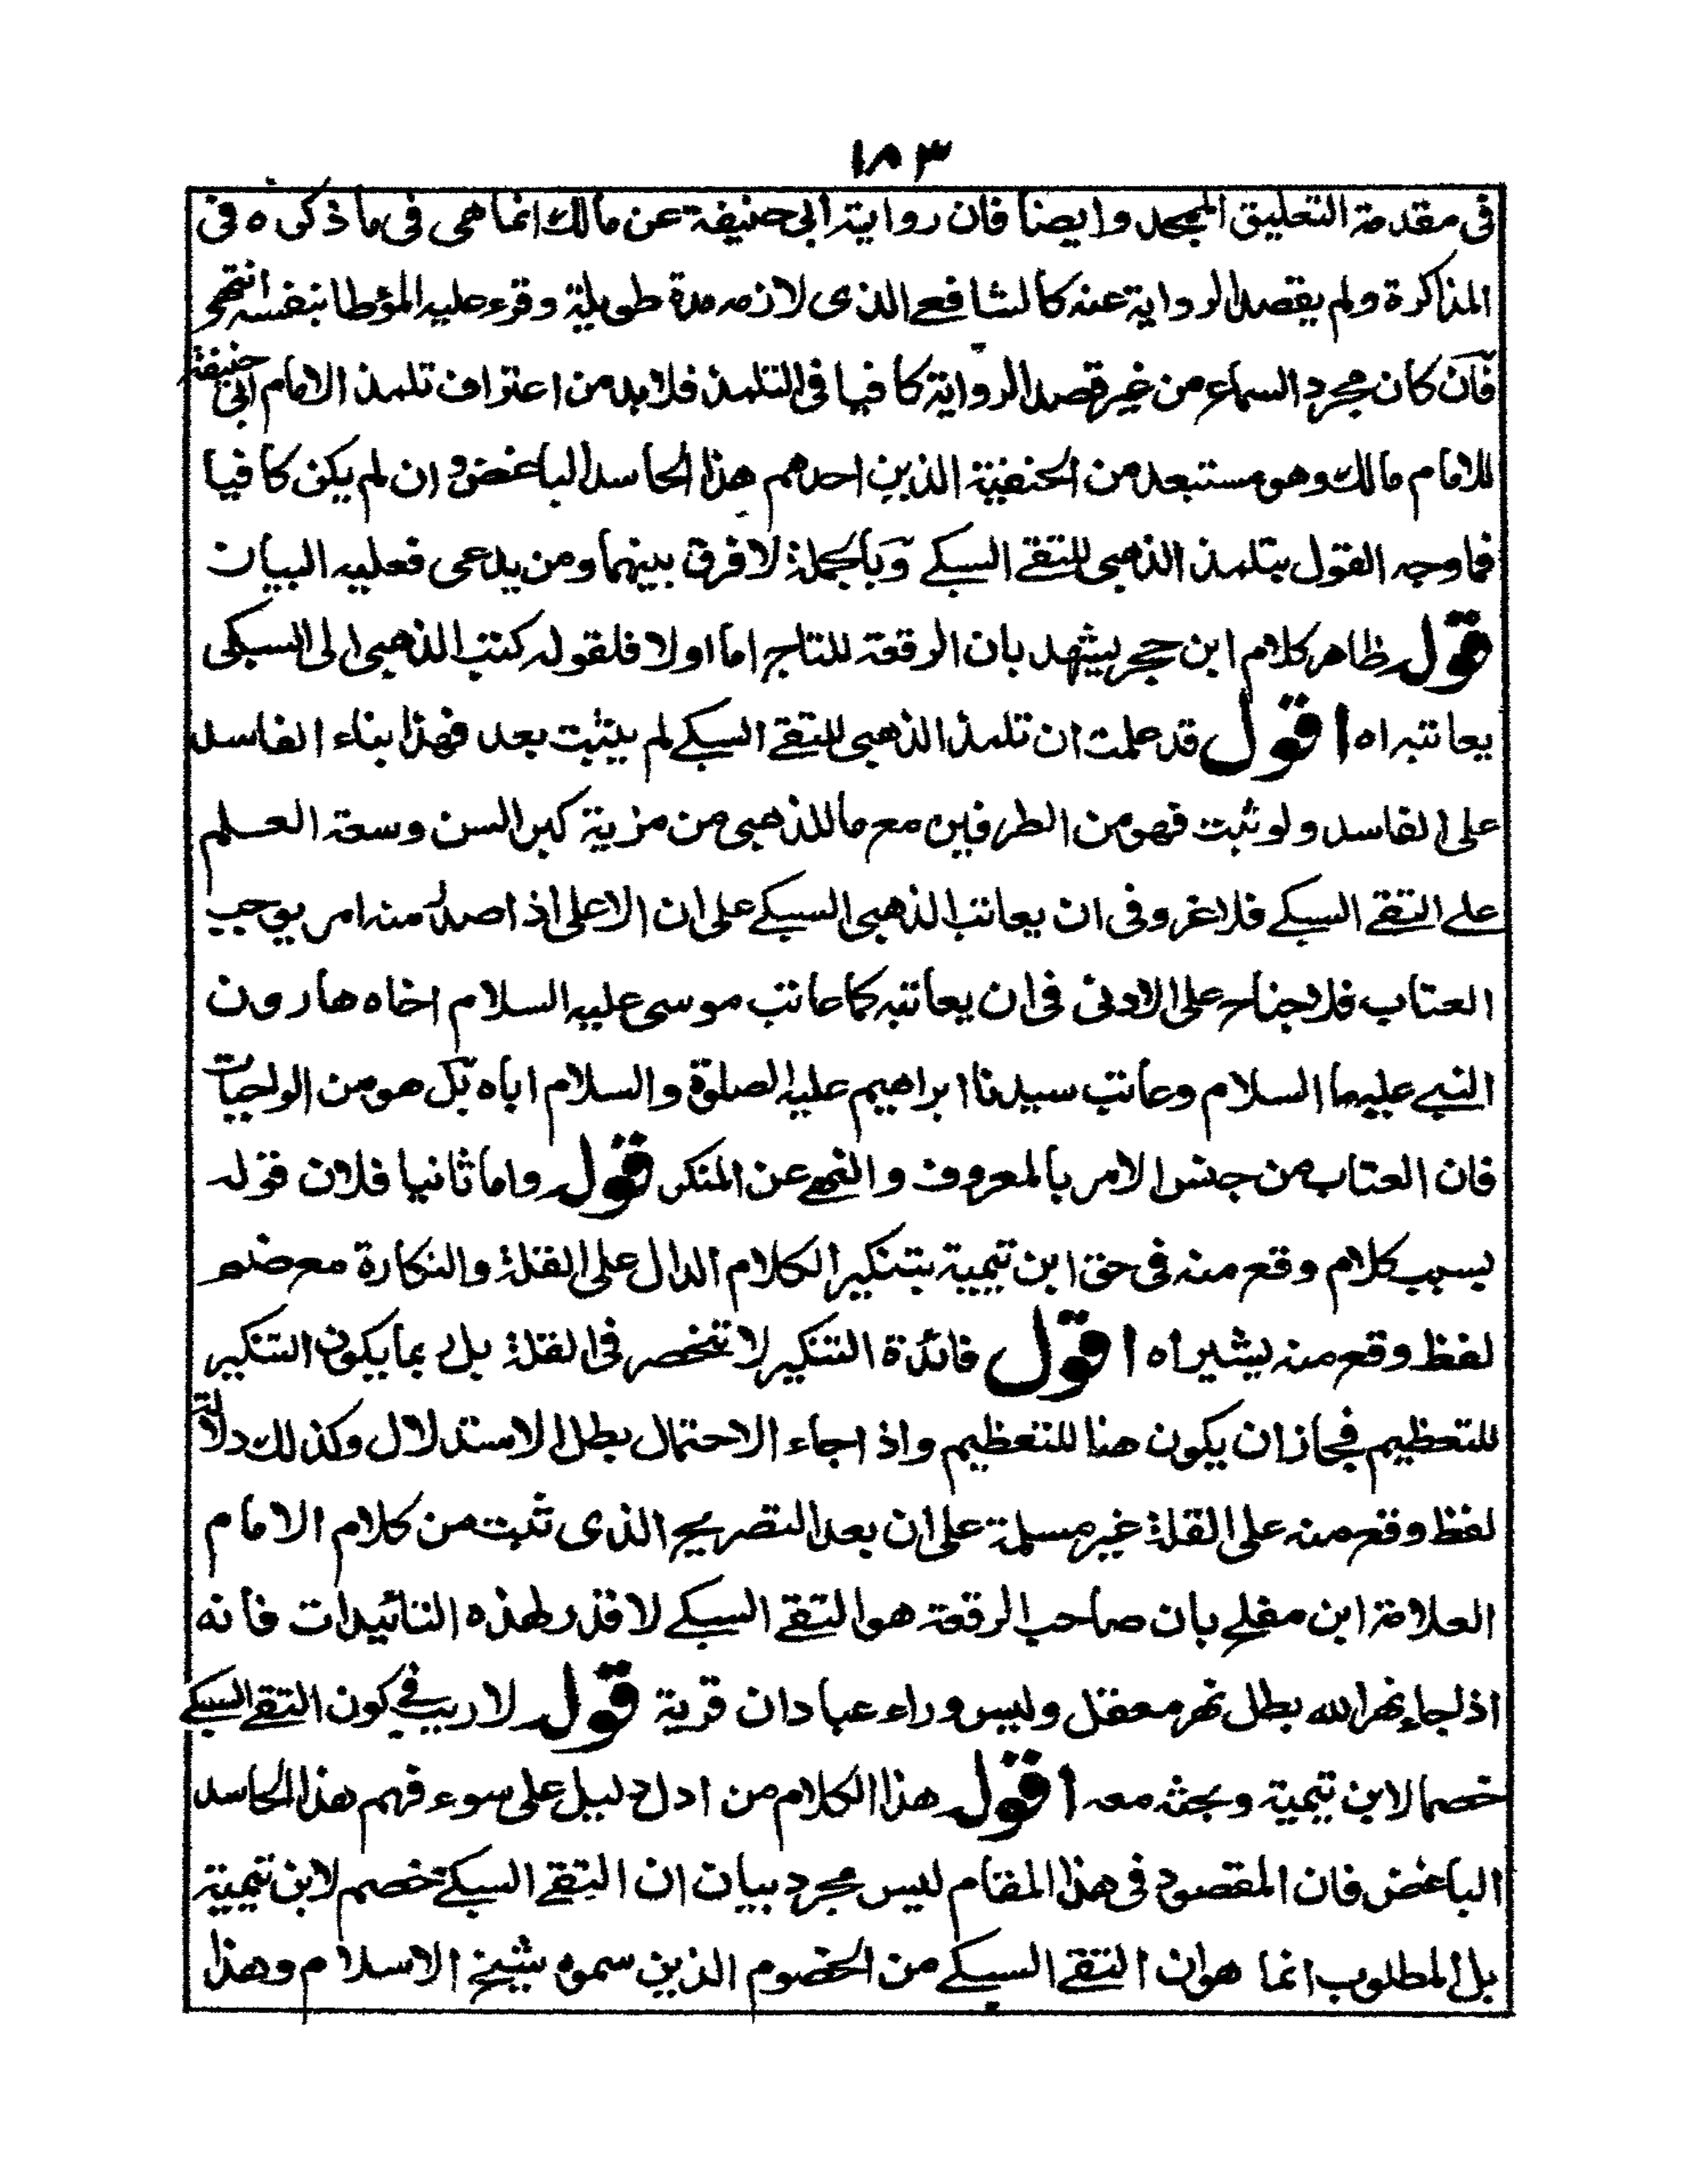 ١٨٣
فى مقدمة التعليق الممجد وايضا فان رواية ابى حنيفة عن مالك انما هى فى ما ذكره فى
المذاكرة ولم يقصد الرواية عنه كالشافعے الذى لازمه مدة طويلة وقرء عليه المؤطا بنفسه انتهى
فان كان مجرد السماع من غير قصد الرواية كافيا فى التلمذ فلابد من اعتراف تلمذ الامام ابى حنيفة
للامام مالك وهو مستبعد من الحنفية الذين احدهم هذا الحاسد الباغض وان لم يكن كافيا
فما وجه القول بتلمذ الذهبى للتقے السبكے وبالجملة لا فرق بينهما ومن يدعى فعليه البيان
قوله ظاهر كلام ابن حجر يشهد بان الرقعة للتاج اما اولا فلقوله كتب الذهبى الى السبكى
يعاتبه اه اقول قد علمت ان تلمذ الذهبى للتقے السبكے لم يثبت بعد فهذا بناء الفاسد
على الفاسد ولو ثبت فهو من الطرفين مع ما للذهبى من مزية كبر السن وسعة العلم
علے التقے السبكے فلا غرو فى ان يعاتب الذهبى السبكے على ان الاعلى اذا صدر منه امر يوجب
العتاب فلا جناح على الادنى فى ان يعاتبه كما عاتب موسى عليه السلام اخاه هارون
النبے عليهما السلام وعاتب سيدنا ابراهيم عليه الصلوة والسلام اباه بل هو من الواجبات
فان العتاب من جنس الامر بالمعروف والنهے عن المنكر قوله واما ثانيا فلان قوله
بسبب كلام وقع منه فى حق ابن تيمية بتنكير الكلام الدال على القلة والنكارة مع ضم
لفظ وقع منه يشير اه اقول فائدة التنكير لا تنحصر فى القلة بل ربما يكون التنكير
للتعظيم فجاز ان يكون هنا للتعظيم واذا جاء الاحتمال بطل الاستدلال وكذلك دلالة
لفظ وقع منه على القلة غير مسلمة على ان بعد التصريح الذى ثبت من كلام الامام
العلامة ابن مفلح بان صاحب الرقعة هو التقے السبكے لا قدر لهذه التائيدات فانه
اذا جاء نهر الله بطل نهر معقل وليس وراء عبادان قرية قوله لا ريب فى كون التقے السبكے
خصما لابن تيمية وبحثه معه اقول هذا الكلام من ادل دليل على سوء فهم هذا الحاسد
الباغض فان المقصود فى هذا المقام ليس مجرد بيان ان التقے السبكے خصم لابن تيمية
بل المطلوب انما هو ان التقے السبكے من الخصوم الذين سموه شيخ الاسلام وهذا